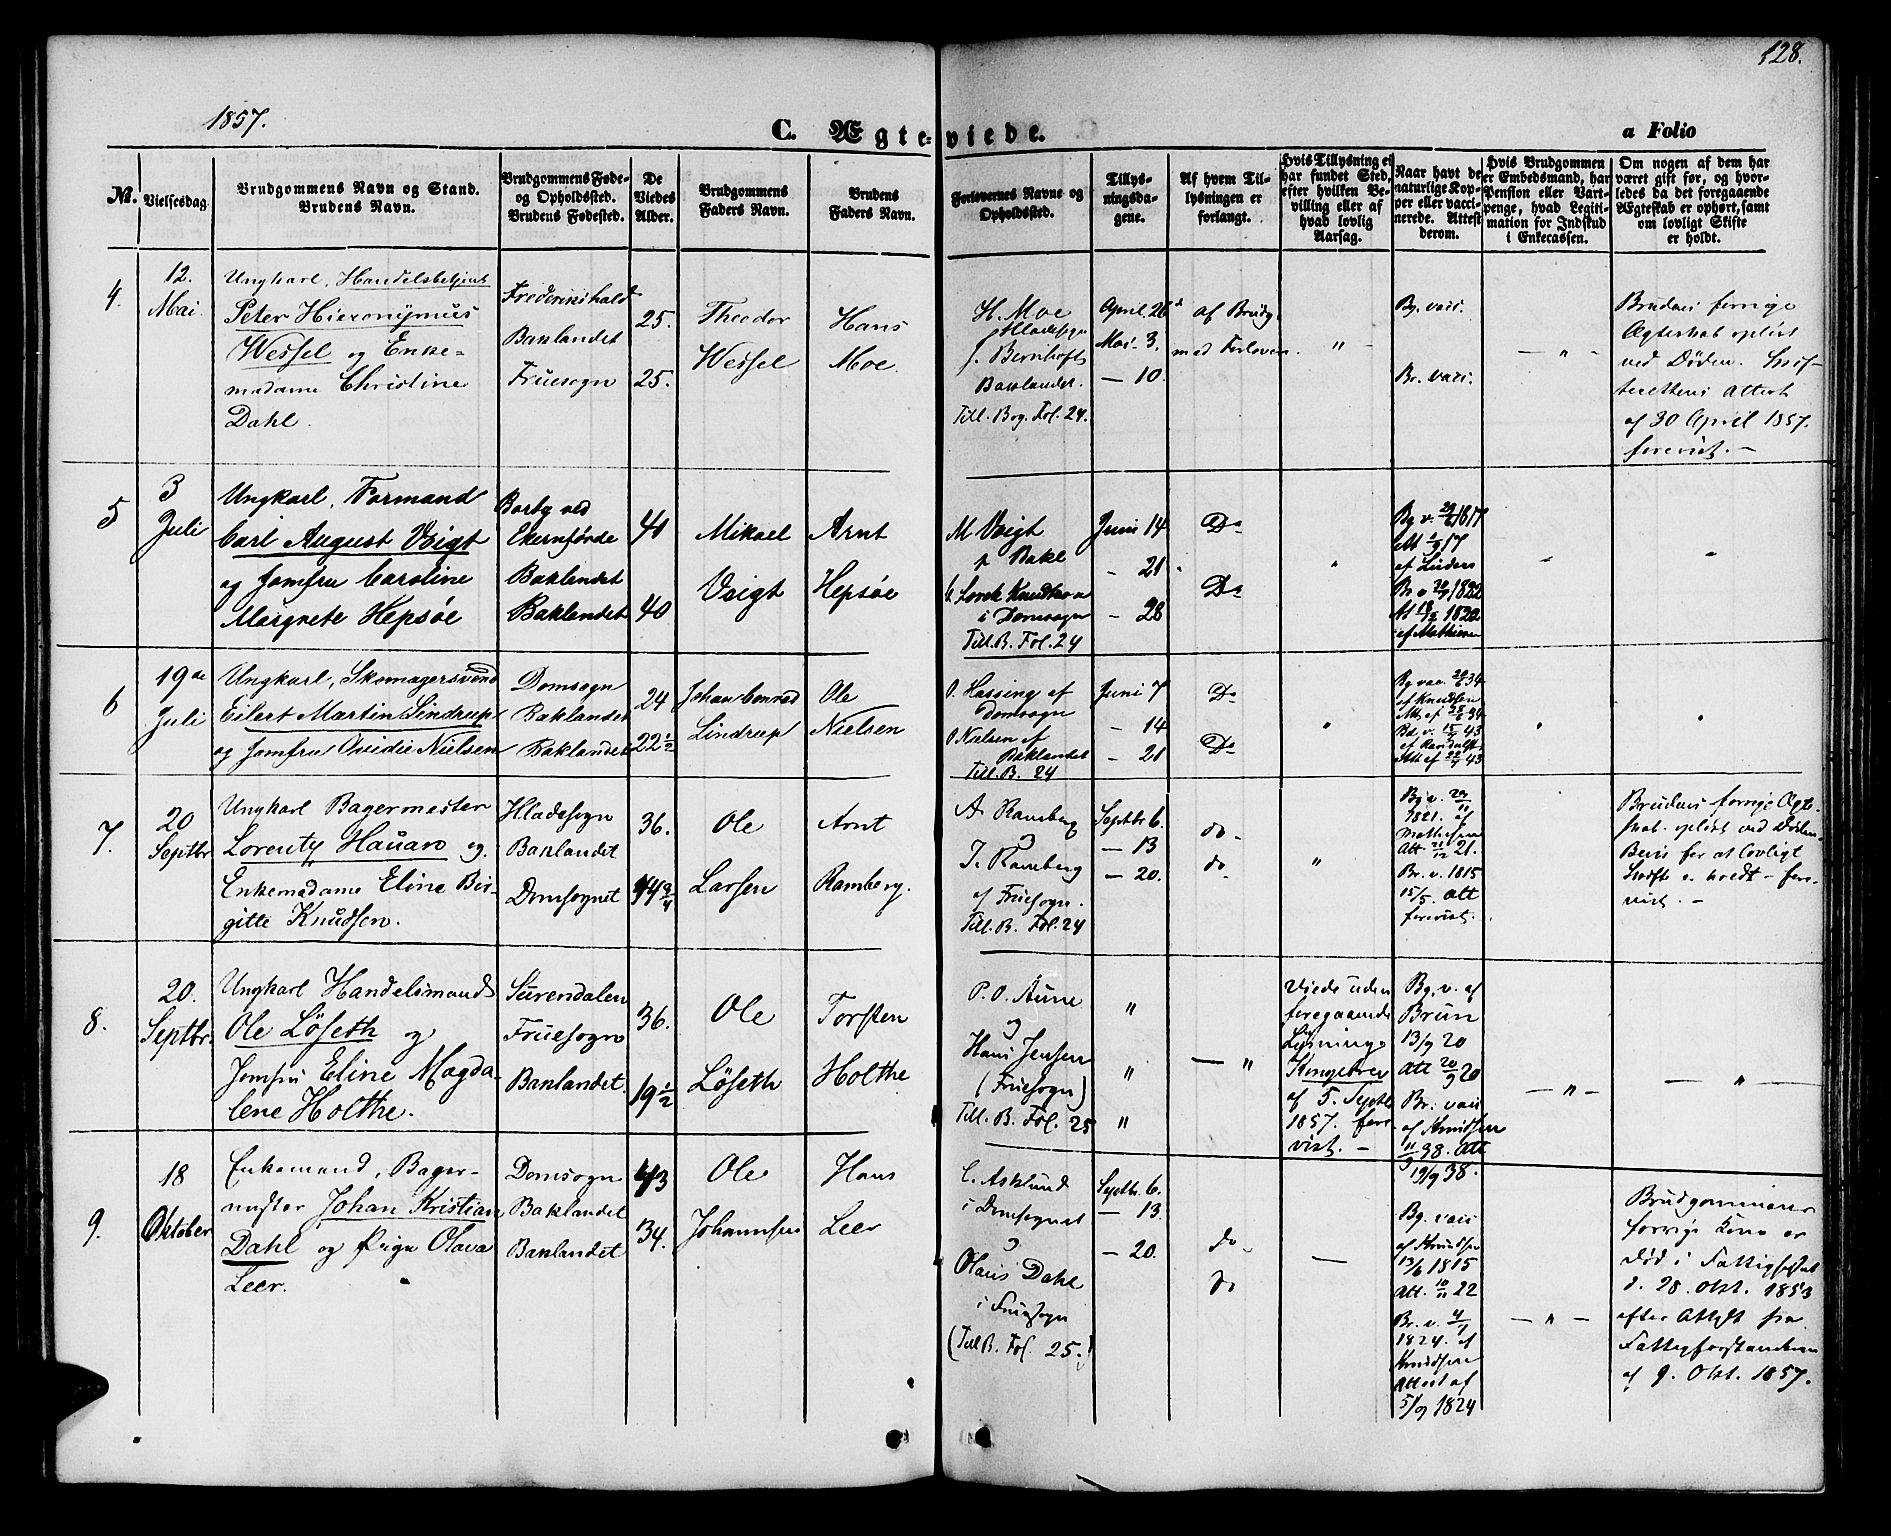 128.
1857.
C. Ægteviede.
a Folio
No.
Vielsesdag.
Brudgommens Navn og Stand.
Brudens Navn.
Brudgommens Føde-
og Opholdssted.
Brudens Fødested.
De
Viedes
Alder.
Brudgommens
Faders Navn.
Brudens
Faders Navn.
Forlovernes Navne og
Opholdssted.
Tillys-
ningsda-
gene.
Af hvem Til-
lysningen er
forlangt.
Hvis Tillysning ei
har fundet Sted,
efter hvilken Be-
villing eller af
hvad lovlig
Aarsag.
Naar havt de
naturlige Kop-
per eller vacci-
nerede. Attest
derom.
Hvis Brudgommen
er Embedsmand, har
Pension eller Vart-
penge, hvad Legiti-
mation for Indskud
i Enkecassen.
Om nogen af dem har
været gift før, og hvor-
ledes da det foregaaende
Ægteskab er ophørt, samt
om lovligt Skifte
er holdt.
4.
12.
Mai.
Ungkarl, Handelsbetjent
Peter Hieronymus
Wessel og Enke-
madame Christine
Dahl.
Frederikshald
Baklandet
Fruesogn
25.
25.
Theodor
Wessel
Hans
Moe.
H. Moe
Hladesogn
J. Bernhoft
Baklandet.
Till. Bog. Fol. 24.
April 26
Mai 3.
— 10.
af Brudg.
med Forlovere.
"
Bg. vacc.
Br. vacc.
— " —
Brudens forrige
Ægteskab opløst
ved Døden. Skif-
terettens Attest
af 30 April 1857.
forevist. —
5
3
Juli
Ungkarl, Formand
Carl August Voigt
og Jomfru Caroline
Margrete Hepsøe
Borby ved
Ekernførde
Baklandet
Baklandet
41
40
Mikael
Voigt
Arnt
Hepsøe
M Voigt
p Bakl
i Domsogn
Till. B. Fol. 24
Juni 14
- 21
- 28
Do
Do
"
Bg v. 29/6 1817
af Linders
"
"
6
19de
Juli
Ungkarl, Skomagersvend
Eilert Martin Lindrup
og Jomfru Ovidie Nielsen
Domsogn
Baklandet
Baklandet
24
22 1/2
Johan Conrad
Lindrup
Ole
Nielsen
O. Hassing af
Domsogn
O Nielsen af
Baklandet
Till. B. 24
Juni 7
- 14
- 21
Do
Do
"
af Knudtzen
"
"
7.
20
Septbr
Ungkarl Bagermester
Lorentz Hauan og
Enkemadame Eline Bir-
gitte Knudsen.
Hladesogn
Baklandet
Domsognet
36.
44 3/4
Ole
Larsen
Arnt
Ramberg.
A. Ramberg
og
J. Ramberg
af Fruesogn.
Till. B. Fol. 24
Septbr 6.
— 13
— 20.
do.
do.
"
Bg. v. 29/11
1821. af
Mathesen
Att. 21/12 21.
Br. v. 1815
15/5. Att
forevist.
Brudens forrige Ægte-
skab opløst ved Døden.
Bevis for at lovligt
Skifte er holdt - fore-
vist. —
8.
20.
Septbr.
Ungkarl Handelsmand
Ole Löseth og
Jomfru Eline Magda-
lene Holthe.
Surendalen
Fruesogn
Baklandet.
36.
19 1/2
Ole
Löseth
Torsten
Holthe
P. O. Aune
og
Hans Jensen
(Fruesogn)
Till. B. Fol. 25
"
"
"
— "
Viede uden
foregaaende
Lysning.
Kongebrev
af 5. Septb
1857. fore-
vist. —
Bg. v. af
Brun
13/9 20
Att 20/9 20
Br. vacc
af Knudtzen
11/9 38. Att
19/9 38.
— " —
— " —
9.
18
Oktober
Enkemand, Bager-
mester Johan Kristian
Dahl og Pige Olava
Leer.
Domsogn
Baklandet
Baklandet
43
34.
Ole
Johannsen
Hans
Leer
C. Asklund
i Domsognet
og
Olaus Dahl
i Fruesogn
(Till B. Fol. 25.)
Septbr. 6.
— 13.
— 20.
do.
do
—
Bg. vacc
af Knudtzen
13/6 1815
Att. 10/11 22
Br. v. 4/9
1824. af
Knudtzen
Attest af
5/9 1824
— " —
Brudgommens
forrige Kone er
død i Fattighuset
d. 28. Okt. 1853
efter Attest fra
Fattigforstanderen
af 9. Okt. 1857.